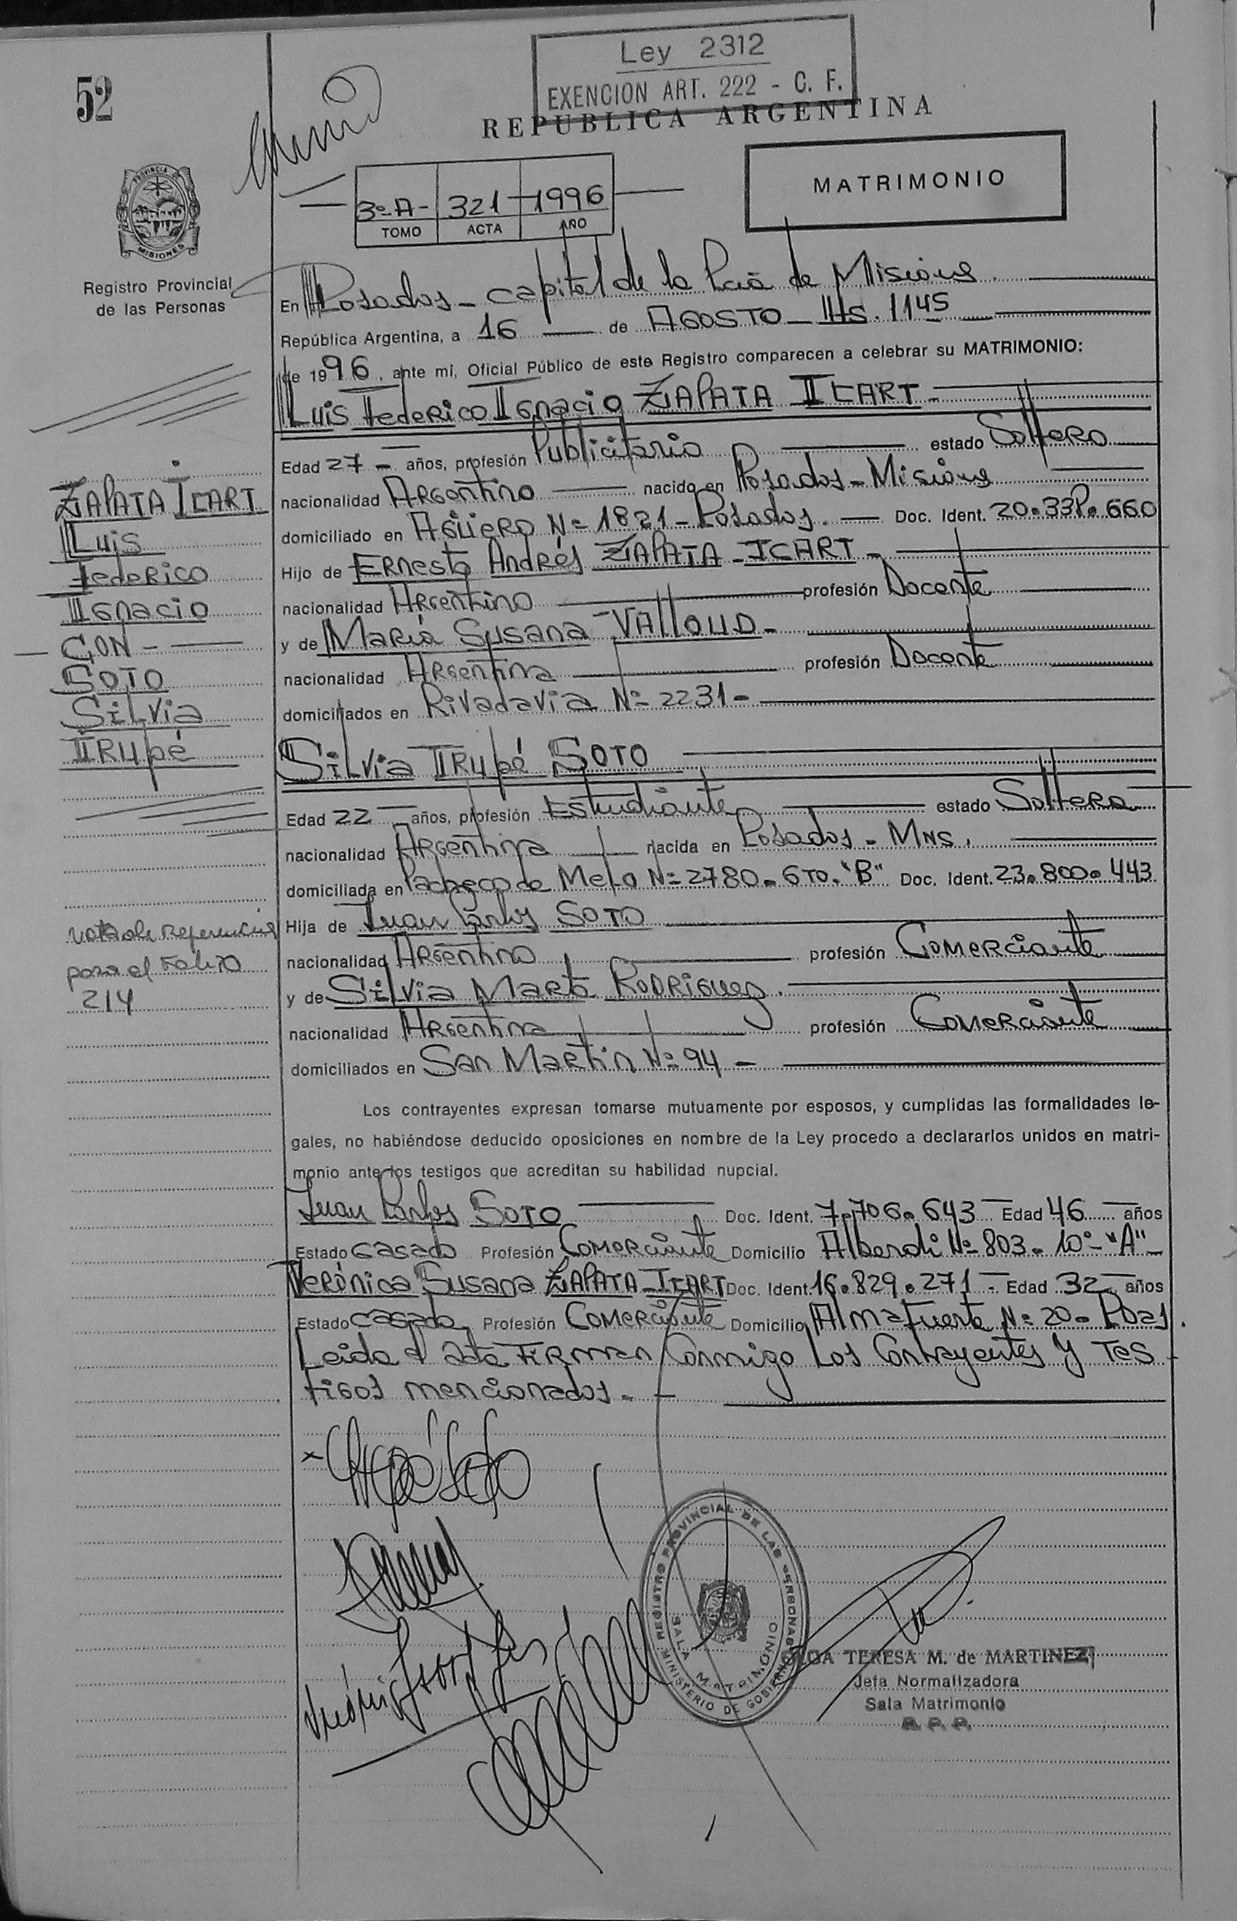 52
Ley 2312
EXENCION ART. 222 - C. F.
REPUBLICA ARGENTINA
MATRIMONIO
3º-A- 321 1996
TOMO ACTA AÑO
PROVINCIA DE
MISIONES
Registro Provincial
de las Personas
En Posadas - capital de la Pcia de Misiones
República Argentina, a 16 de AGOSTO - Hs. 1145
de 1996, ante mi, Oficial Público de este Registro comparecen a celebrar su MATRIMONIO:
Luis Federico Ignacio ZAPATA ICART -
Edad 27 - años, profesión Publicitario estado Soltero
nacionalidad Argentino nacido en Posadas - Misiones
domiciliado en Agüero Nº 1821 - Posadas. Doc. Ident. 20.338.660
Hijo de Ernesto Andrés ZAPATA - ICART -
nacionalidad Argentino profesión Docente
y de María Susana VALLOUD -
nacionalidad Argentina profesión Docente
domiciliados en Rivadavia Nº 2231 -
Silvia Irupé SOTO
Edad 22 años, profesión Estudiante estado Soltera
nacionalidad Argentina nacida en Posadas - Mns.
domiciliada en Pacheco de Melo Nº 2780 - 6TO. "B" Doc. Ident. 23.800.443
Hija de Juan Carlos SOTO
nacionalidad Argentino profesión Comerciante
y de Silvia Marta Rodriguez.
nacionalidad Argentina profesión Comerciante
domiciliados en San Martin Nº 94 -
Los contrayentes expresan tomarse mutuamente por esposos, y cumplidas las formalidades le-
gales, no habiéndose deducido oposiciones en nombre de la Ley procedo a declararlos unidos en matri-
monio ante los testigos que acreditan su habilidad nupcial.
Juan Carlos SOTO Doc. Ident. 7.706.643 Edad 46 años
Estado casado Profesión Comerciante Domicilio Alberdi Nº 803 - 10º - "A" -
Verónica Susana ZAPATA - ICART Doc. Ident. 16.829.271 - Edad 32 años
Estado casada Profesión Comerciante Domicilio Almafuerte Nº 20 - Pdas.
Leida el acta Firman Conmigo Los Contrayentes y Tes
tigos mencionados. -
ZAPATA ICART
Luis
Federico
Ignacio
CON -
SOTO
Silvia
Irupé
nota de referencia
para el Folio
214
REGISTRO PROVINCIAL DE LAS PERSONAS
SALA MATRIMONIO
MINISTERIO DE GOBIERNO
TERESA M. de MARTINEZ
Jefa Normalizadora
Sala Matrimonio
R. P. P.